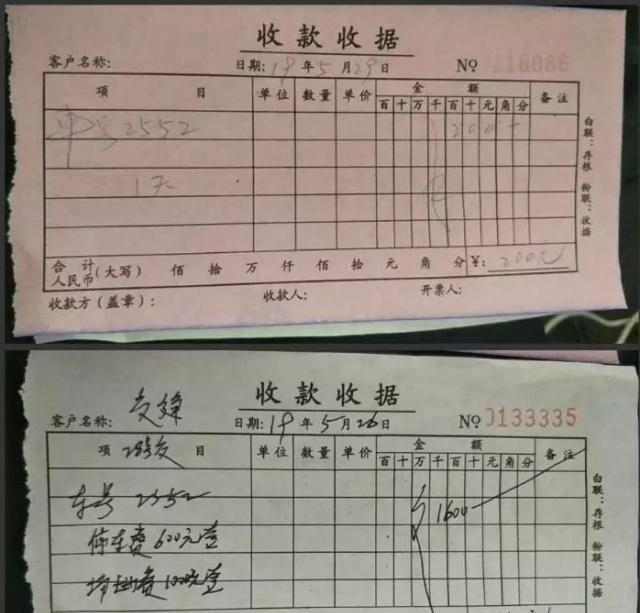 收款收据
客户名称: 日期: 19年5月29日 No 116086
项目 单位 数量 单价 金额 备注
百 十 万 千 百 十 元 角 分
车号2552 200
1天
合计人民币(大写) 佰 拾 万 仟 佰 拾 元 角 分 ¥: 200元
收款方(盖章): 收款人: 开票人:
白联:存根 粉联:收据
收款收据
客户名称: 日期: 19年5月26日 No 0133335
项目 单位 数量 单价 金额 备注
百 十 万 千 百 十 元 角 分
车号 2552 1600
停车费 600元
1000元
白联:存根 粉联:收据